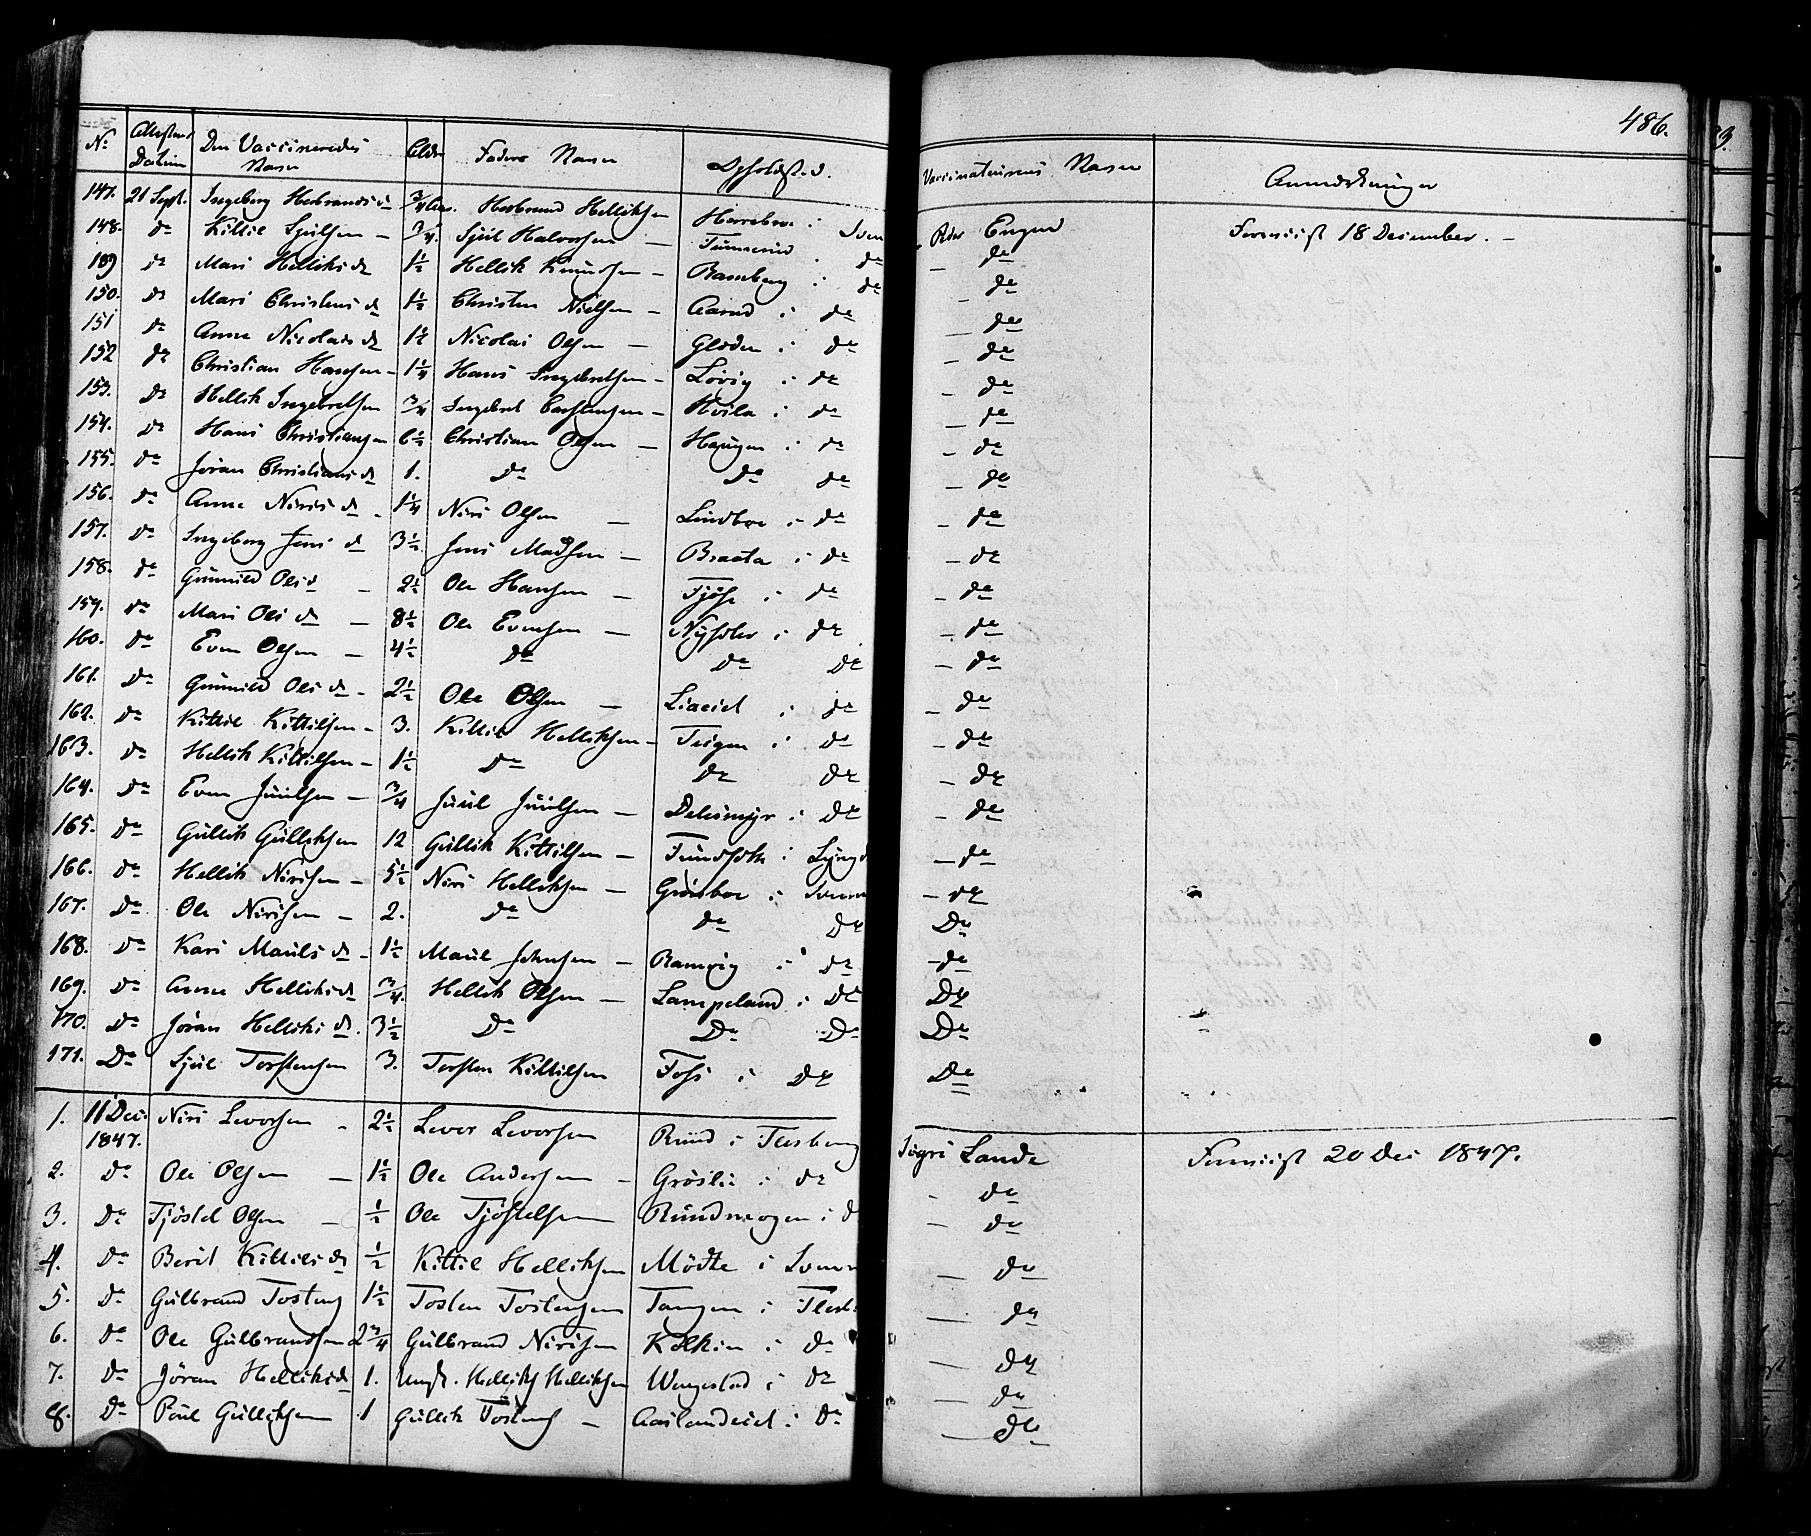 486.
No Attestens Datum Den Vaccineredes Navn Alder Faders Navn Opholdsted. Vaccinateurens Navn Anmærkninger
147. 21 Sept. Ingeborg Herbrandsd 3/4 Aar. Herbrand Helliksen Herrebroe i Svem Peder Engen Forevist 18 December. -
148. do Kittil Sjulsen - 3/4. Sjul Halvorsen - Tunnerud do - do
189 do Mari Helliksd 1 1/2 Hellik Knudsen - Ramberg i do - do
150. do Mari Christensd 1 1/2 Christen Nielsen - Aarud i do - do
151 do Anne Nicolaisd 1 1/2 Nicolai Olsen - Gloden i do - do
152 do Christian Hansen - 1 1/4 Hans Ingebretsen - Lovig i do - do
153. do Hellik Ingebretsen 3/4 Ingebret Carstensen - Hvila i do - do
154. do Hans Christiansen 6 1/2 Christian Olsen - Haugen i do - do
155. do Jøran Christiansd 1. do do do - do
156. do Anne Nirisd - 1 1/4 Niri Olsen - Lindboe i do - do
157. do Ingeborg Jensd 3 1/2. Jens Madsen - Braata i do - do
158. do Gunnild Olsd - 2 1/2 Ole Hansen - Tjøse i do - do
159. do Mari Olsd - 8 1/2 Ole Evensen - Nysæter i do - do
160. do Even Olsen - 4 1/2 do do do - do
161. do Gunnild Olsd - 2 1/2 Ole Olsen - Liaeiet i do - do
162. do Kittil Kittilsen - 3. Kittil Helliksen - Teigen i do - do
163. do Hellik Kittilsen - 1 1/2 do do do - do
164. do Even Juulsen - 3/4 Juul Juulsen - Delismyr i do - do
165. do Gullik Gulliksen 12 Gullik Kittilsen - i Lyngd - do
166. do Hellik Nirisen - 5 1/2 Niri Helliksen - Grønboe i Svem - do
167. do Ole Nirisen - 2. do do do Do
168. do Kari Maulsd - 1 1/2 Maul Johnsen - Ramvig i do - do
169. do Anne Helliksd 3/4. Hellik Olsen - Lampeland i do Do
170. do Jøran Helliksd. 3 1/2 Do Do Do Do
171. Do Sjul Torstensen 3. Torsten Kittilsen Foss i do Do
1. 11 Dec. 1847. Niri Levorsen - 2 1/2 Levor Levorsen Ruud i Flesberg Tøgri Lande Forevist 20 Dec 1847.
2. do Ole Olsen - 1 1/2 Ole Andersen - Grøslie i do - do
3. do Tjøstel Olsen - 1/2 Ole Tjøstelsen Rundmogen i d - do
4. do Berit Kittilsd 1/2 Kittil Helliksen Mødte i Svem - do
5. do Gulbrand Tosteng 1 1/2 Tosten Tostensen Tangen i Flesb - do
6. do Ole Gulbrandsen 2 3/4 Gulbrand Nirisen Kolkin i do - do
7. do Jøran Helliksd 1. Ungk. Hellik Helliksen Wengestad i do - do
8. do Poul Gulliksen 1 Gullik Tosteng - Aaslandeiet i do - do